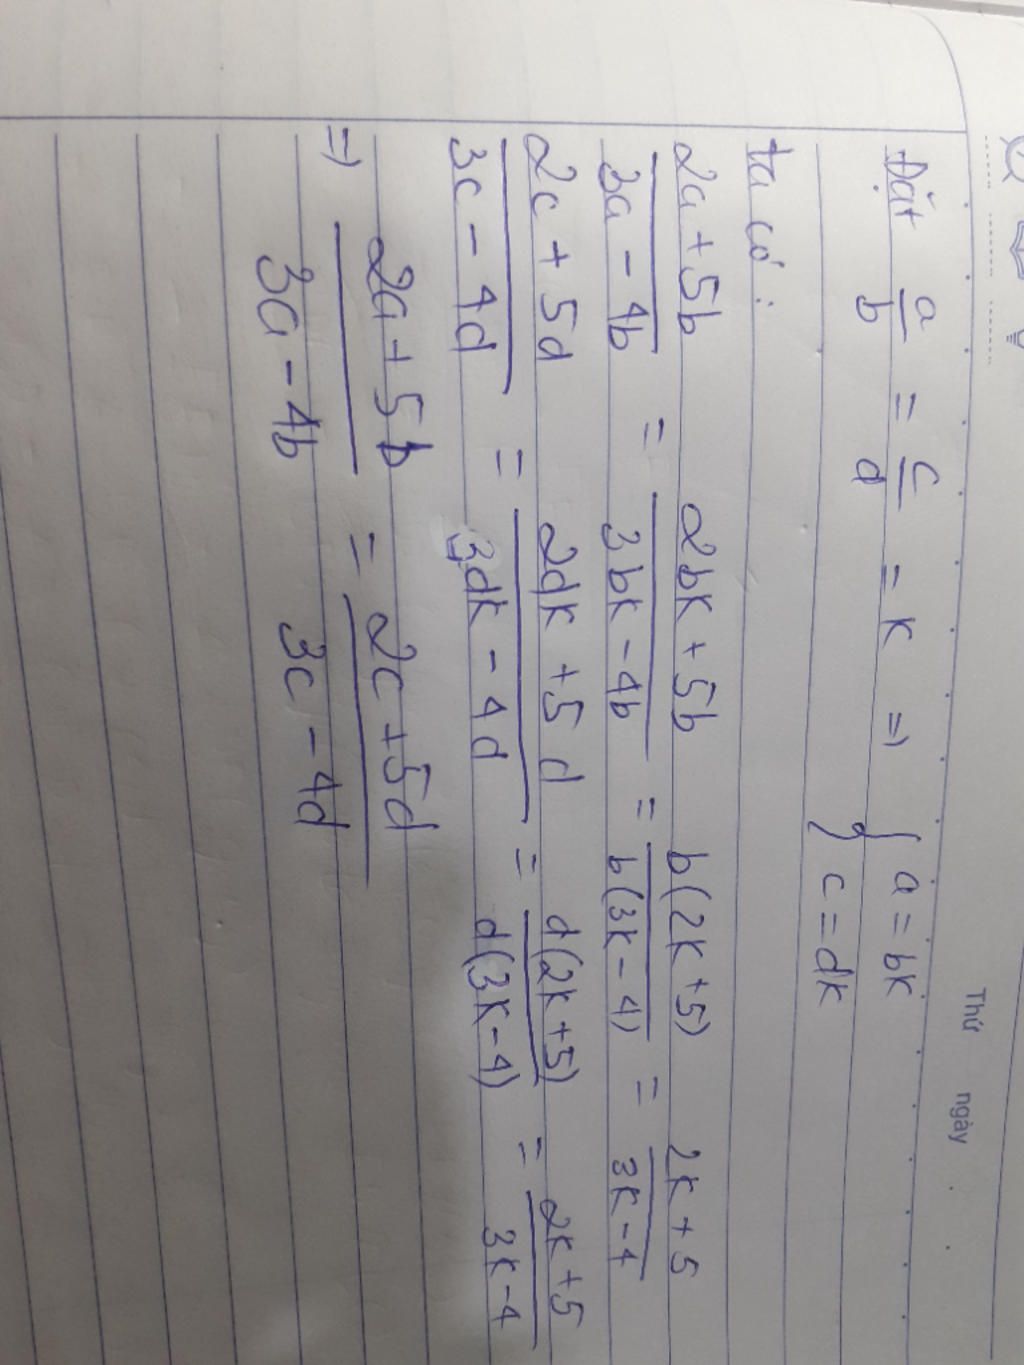 Thứ ngày
Đặt a/b = c/d = k => { a = bk
c = dk
ta có:
2a + 5b / 3a - 4b = 2bk + 5b / 3bk - 4b = b(2k + 5) / b(3k - 4) = 2k + 5 / 3k - 4
2c + 5d / 3c - 4d = 2dk + 5d / 3dk - 4d = d(2k + 5) / d(3k - 4) = 2k + 5 / 3k - 4
=> 2a + 5b / 3a - 4b = 2c + 5d / 3c - 4d